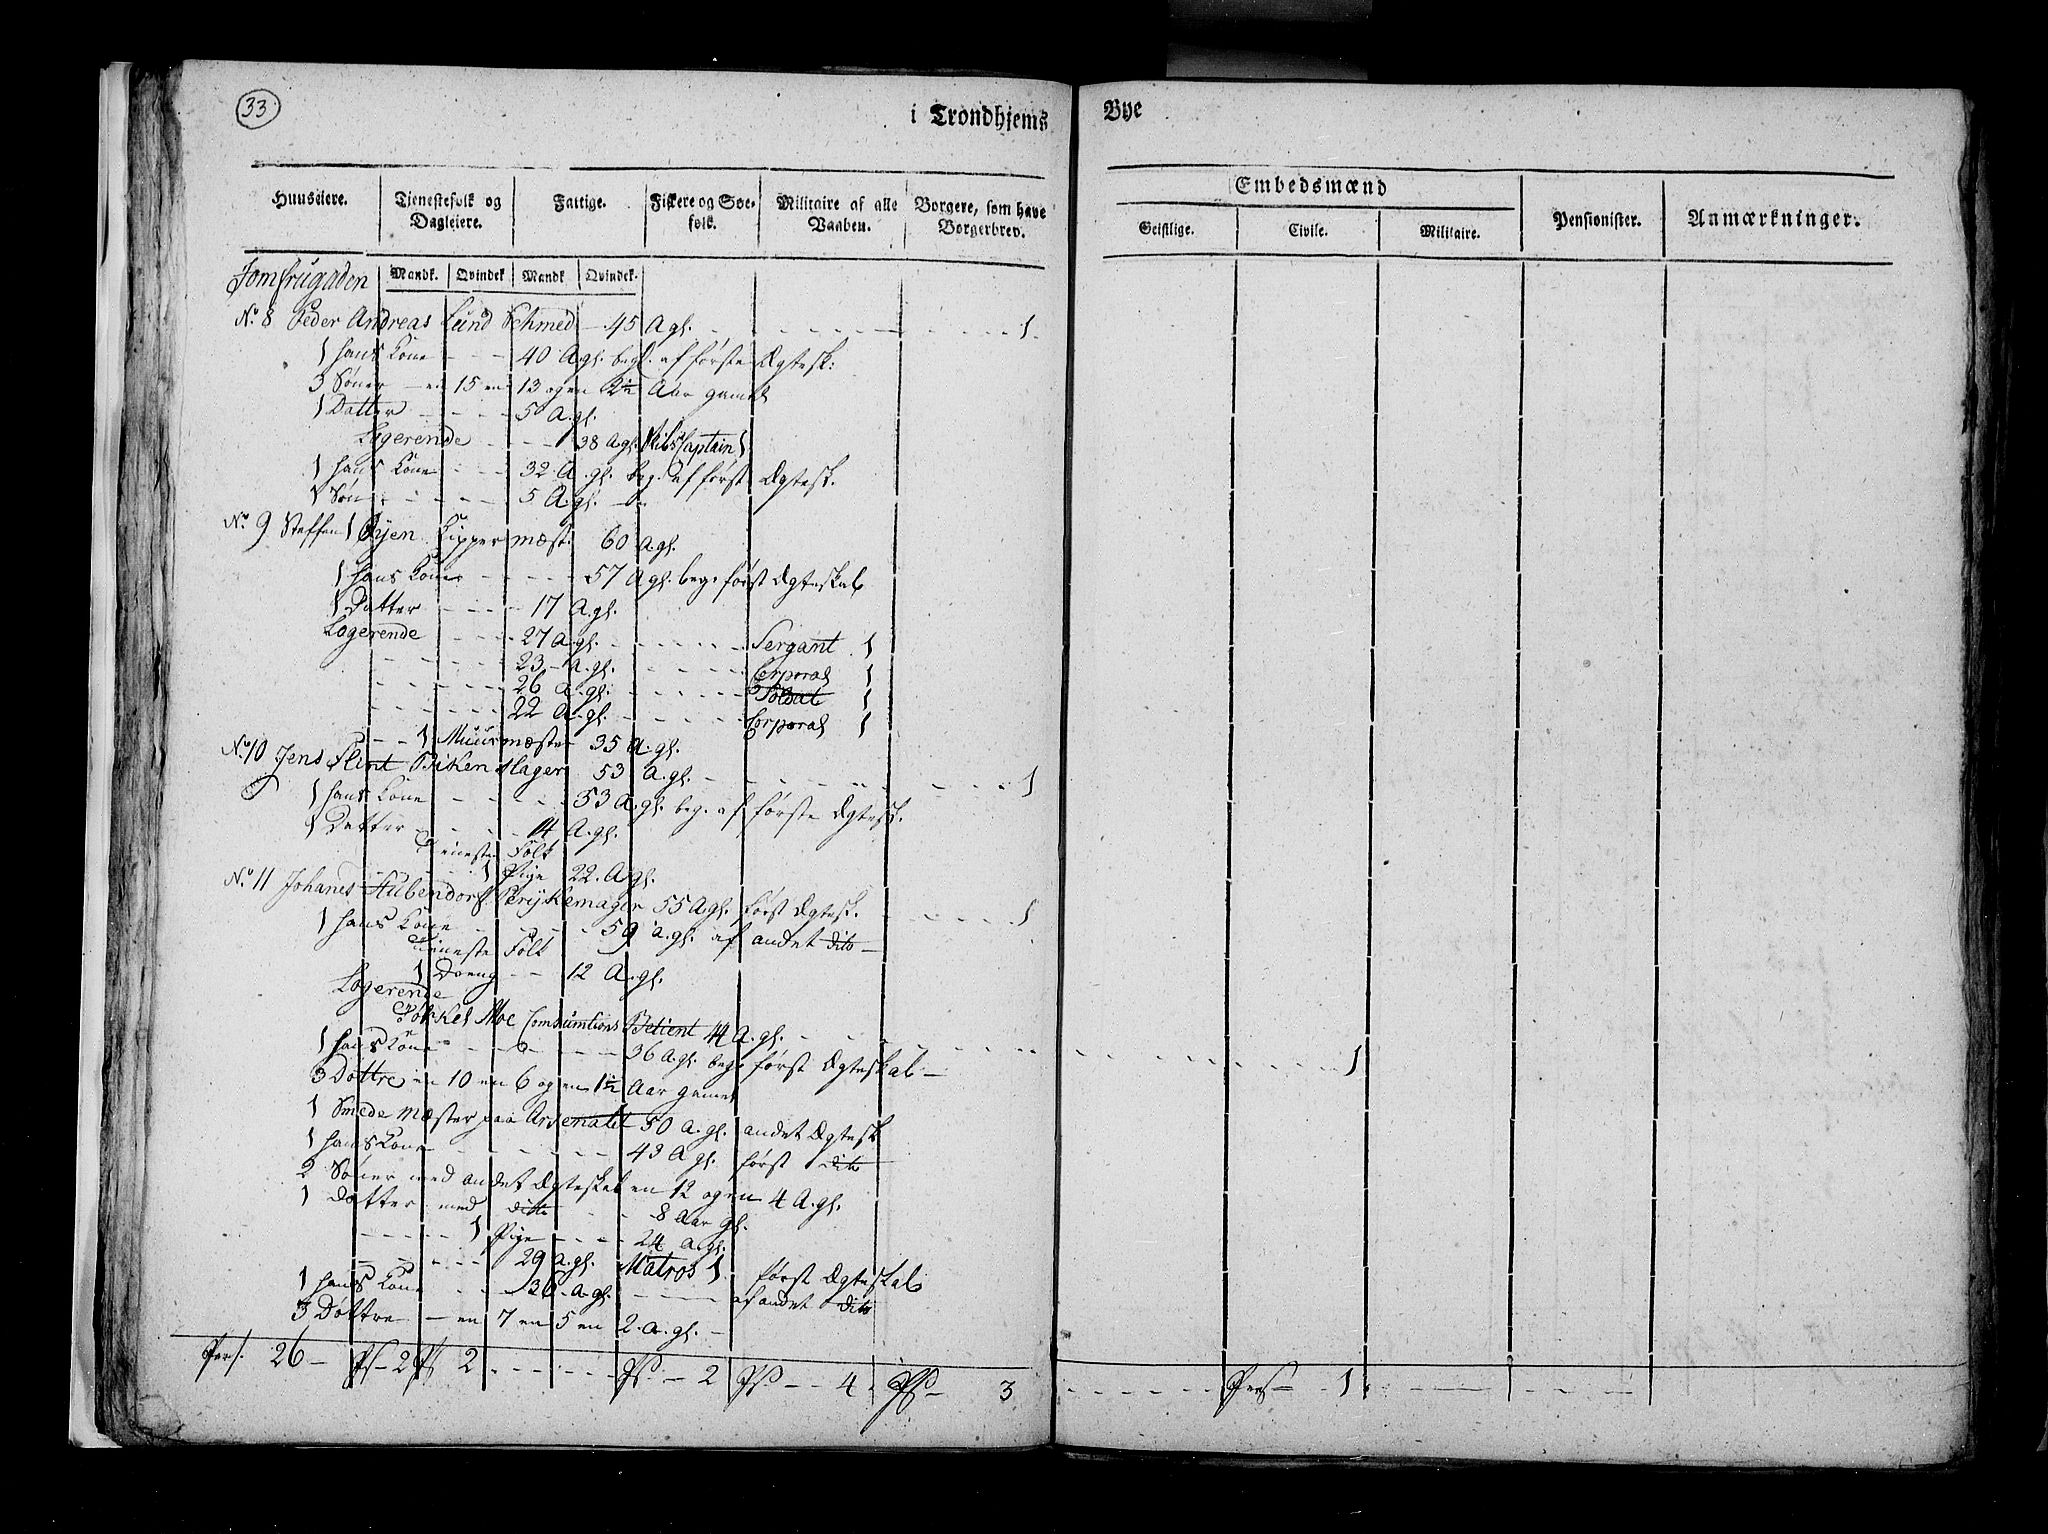 33
i Trondhjems Bye
Huuseiere. Tjenestefolk og Dagleiere. Fattige. Fiskere og Søefolk. Militaire af alle Vaaben. Borgere, som have Borgerbrev. Embedsmænd Geistlige. Civile. Militaire. Pensionister. Anmærkninger.
Mandk. Qvindek Mandk Qvindek.
Jomfrugaden
No. 8 Peder Andreas Lund Schmed - 45 A gl. 1
1 hans Kone - - - 40 A gl. begl. af første Ægtesk:
3 Søner - en 15 en 13 og en 2½ Aar gamel
1 Datter - - - - 5 A. gl.
Logerende - - - - 38 A gl. Skibs Captain 1
1 hans Kone - - - 32 A. gl. beg. af først Ægtesk.
1 Søn - - - - - 5 A. gl.
No. 9 Steffen Øyen Kipper mæst: 60 A gl.
1 hans Kone - - - - - 57 A gl. beg. først Ægteskab
1 Datter - - - - 17 A. gl.
Logerende - - - - 27 A gl. - - - - - Sergant 1
- - - - - 23 - A. gl. - - - - Corporal 1
- - - - - 26 a. gl. - - - - - Soldat 1
- - - - - 22 A. gl. - - - - - Corporal 1
- - 1 Muurmæster 35 A. gl.
No. 10 Jens Flint Bøken Mager 53 A. gl. - - - - 1
1 hans Kone - - - - 53 A. gl. beg. af første Ægtesk.
1 Datter - - - - 14 A. gl.
Tieneste Folk
1 Pige 22. A gl.
No. 11 Johanes Hubendorf Perykemager 55 A gl. først Ægtesk. - - - - 1
1 hans Kone - - - - 59 a. gl. af andet dito -
Tieneste Folk
1 Dreng - - 12 A. gl.
Logerende
Tokkel Moe Consumtions Betient 44 A. gl. - - - - 1
1 hans Kone - - - - - 36 A gl. beg. først Ægteskab -
3 Døttre en 10 en 6 og en 1½ Aar gamel
1 Smede Mæster paa Arsenalet 50 A. gl. andet Ægtesk
1 hans Kone - - - - - 43 A gl. først dito
2 Søner med andet Ægteskab en 12 og en 4 A. gl.
1 Datter med ditto - - 8 Aar gl.
- - - - - 1 Pige - - - - 24 a. gl.
- - - - - 29 a. gl. Matros 1 først Ægteskab
1 hans Kone - - 36 - a. gl. - - - af andet dito
3 Døttre - en 7 en 5 en 2. a. gl. -
Pers. 26 - Ps - 2 Ps 2 - - - - - Ps - 2 Ps - - 4 . Ps - 3 - - - - - Pers - 1